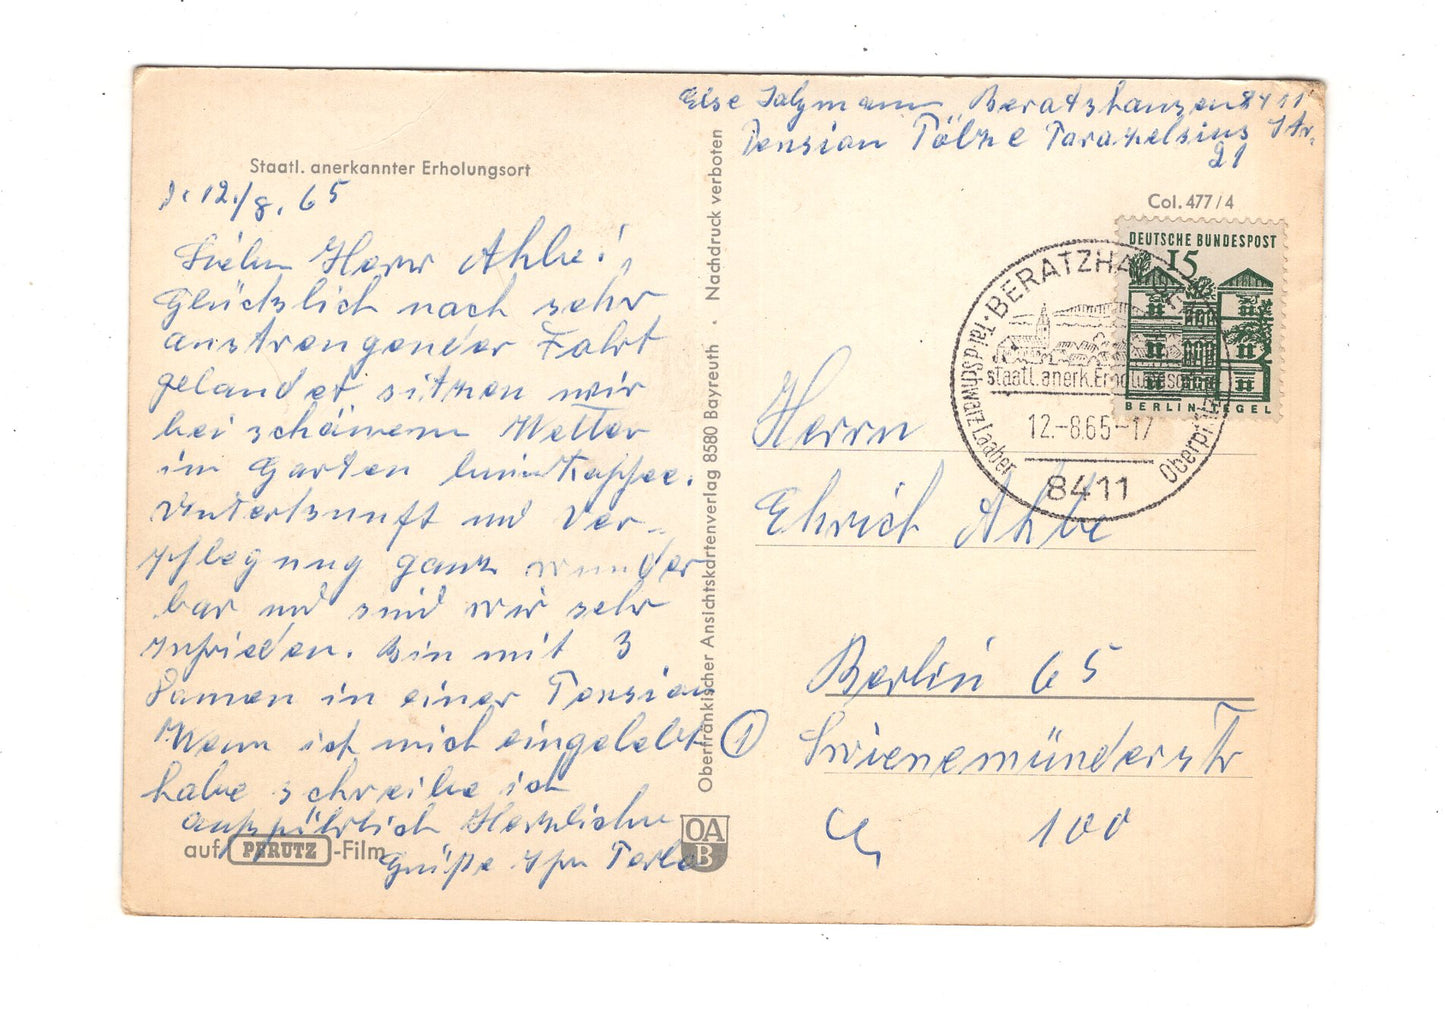 Else Salzmann Beratzhausen 8411
Pension Tölze Parazelsius Str.
21
Staatl. anerkannter Erholungsort
d. 12./8. 65
Col. 477/4
Lieber Herr Ahbe!
Glücklich nach sehr
anstrengender Fahrt
gelandet sitzen wir
bei schönem Wetter
im Garten beim Kaffee.
Unterkunft und Ver-
pflegung ganz wunder
bar und sind wir sehr
zufrieden. Bin mit 3
Damen in einer Pension
Wenn ich mich eingelebt
habe schreibe ich
ausführlich Herzliche
Grüße Ihre
auf PERUTZ-Film
Oberfränkischer Ansichtskartenverlag 8580 Bayreuth · Nachdruck verboten
OA
B
DEUTSCHE BUNDESPOST
15
BERLIN TEGEL
BERATZHAUSEN
Tal d. schwarz. Laaber
staatl. anerk. Erholungsort
12.-8.65-17
8411
Herrn
Ehrich Ahbe
1
Berlin 65
Swienemünderstr
100